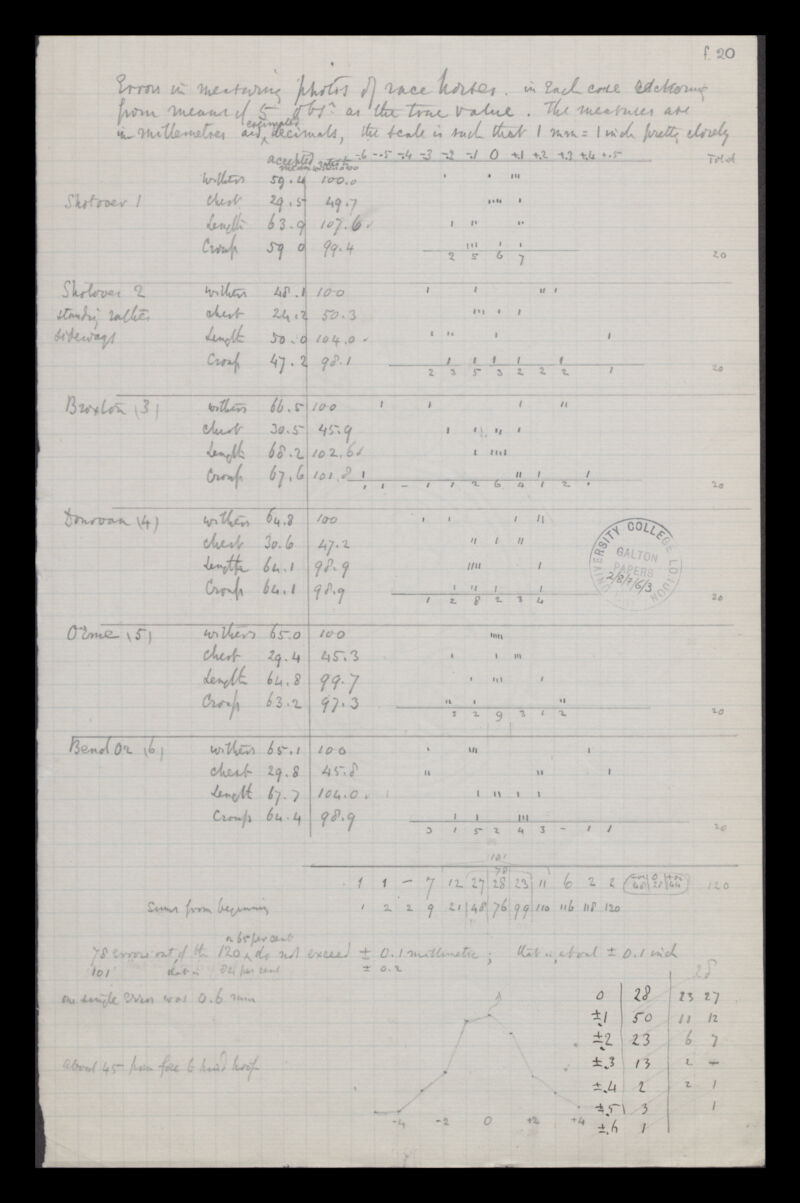 f. 20
Errors in measuring photos of race horses. in Each case reckoning
from means of 5 obsns as the true value. The measures are
in millemetres and estimated decimals, the scale is such that 1 mm = 1 inch pretty closely
accepted mean -.6 -.5 -.4 -.3 -.2 -.1 0 +.1 +.2 +.3 +.4 +.5 Total
withers 59.4 100.0
Shotover 1 chest 29.5 49.7
Length 63.9 107.6
Croup 59 0 99.4
2 5 6 7 20
Shotover 2 withers 48.1 100
standing rather chest 24.2 50.3
sideways Length 50.0 104.0
Croup 47.2 98.1
2 3 5 3 2 2 2 1 20
Broxton (3) withers 66.5 100
chest 30.5 45.9
Length 68.2 102.6
Croup 67.6 101.8
1 1 - 1 1 2 6 4 1 2 1 20
Donovan (4) withers 64.8 100
chest 30.6 47.2
Length 64.1 98.9
Croup 64.1 98.9
1 2 8 2 3 4 20
UNIVERSITY COLLEGE LONDON
GALTON
PAPERS
2/8/7/6/3
Orme (5) withers 65.0 100
chest 29.4 45.3
Length 64.8 99.7
Croup 63.2 97.3
3 2 9 3 1 2 20
Bend Or (6) withers 65.1 100
chest 29.8 45.8
Length 67.7 104.0
Croup 64.4 98.9
3 1 5 2 4 3 - 1 1 20
101
78
1 1 - 7 12 27 28 23 11 6 2 2 48 28 44 120
Sums from beginning 1 2 2 9 21 48 76 99 110 116 118 120
or 65 per cent
78 errors out of the 120 do not exceed ± 0.1 millimetre; that is, about ± 0.1 inch
101 that is 84 per cent ± 0.2
28
one single error was 0.6 mm
0 28 23 27
±.1 50 11 12
±.2 23 6 7
about 45 from face to hind hoof
±.3 13 2 -
±.4 2 2 1
±.5 3 1
±.6 1
-4 -2 0 +2 +4